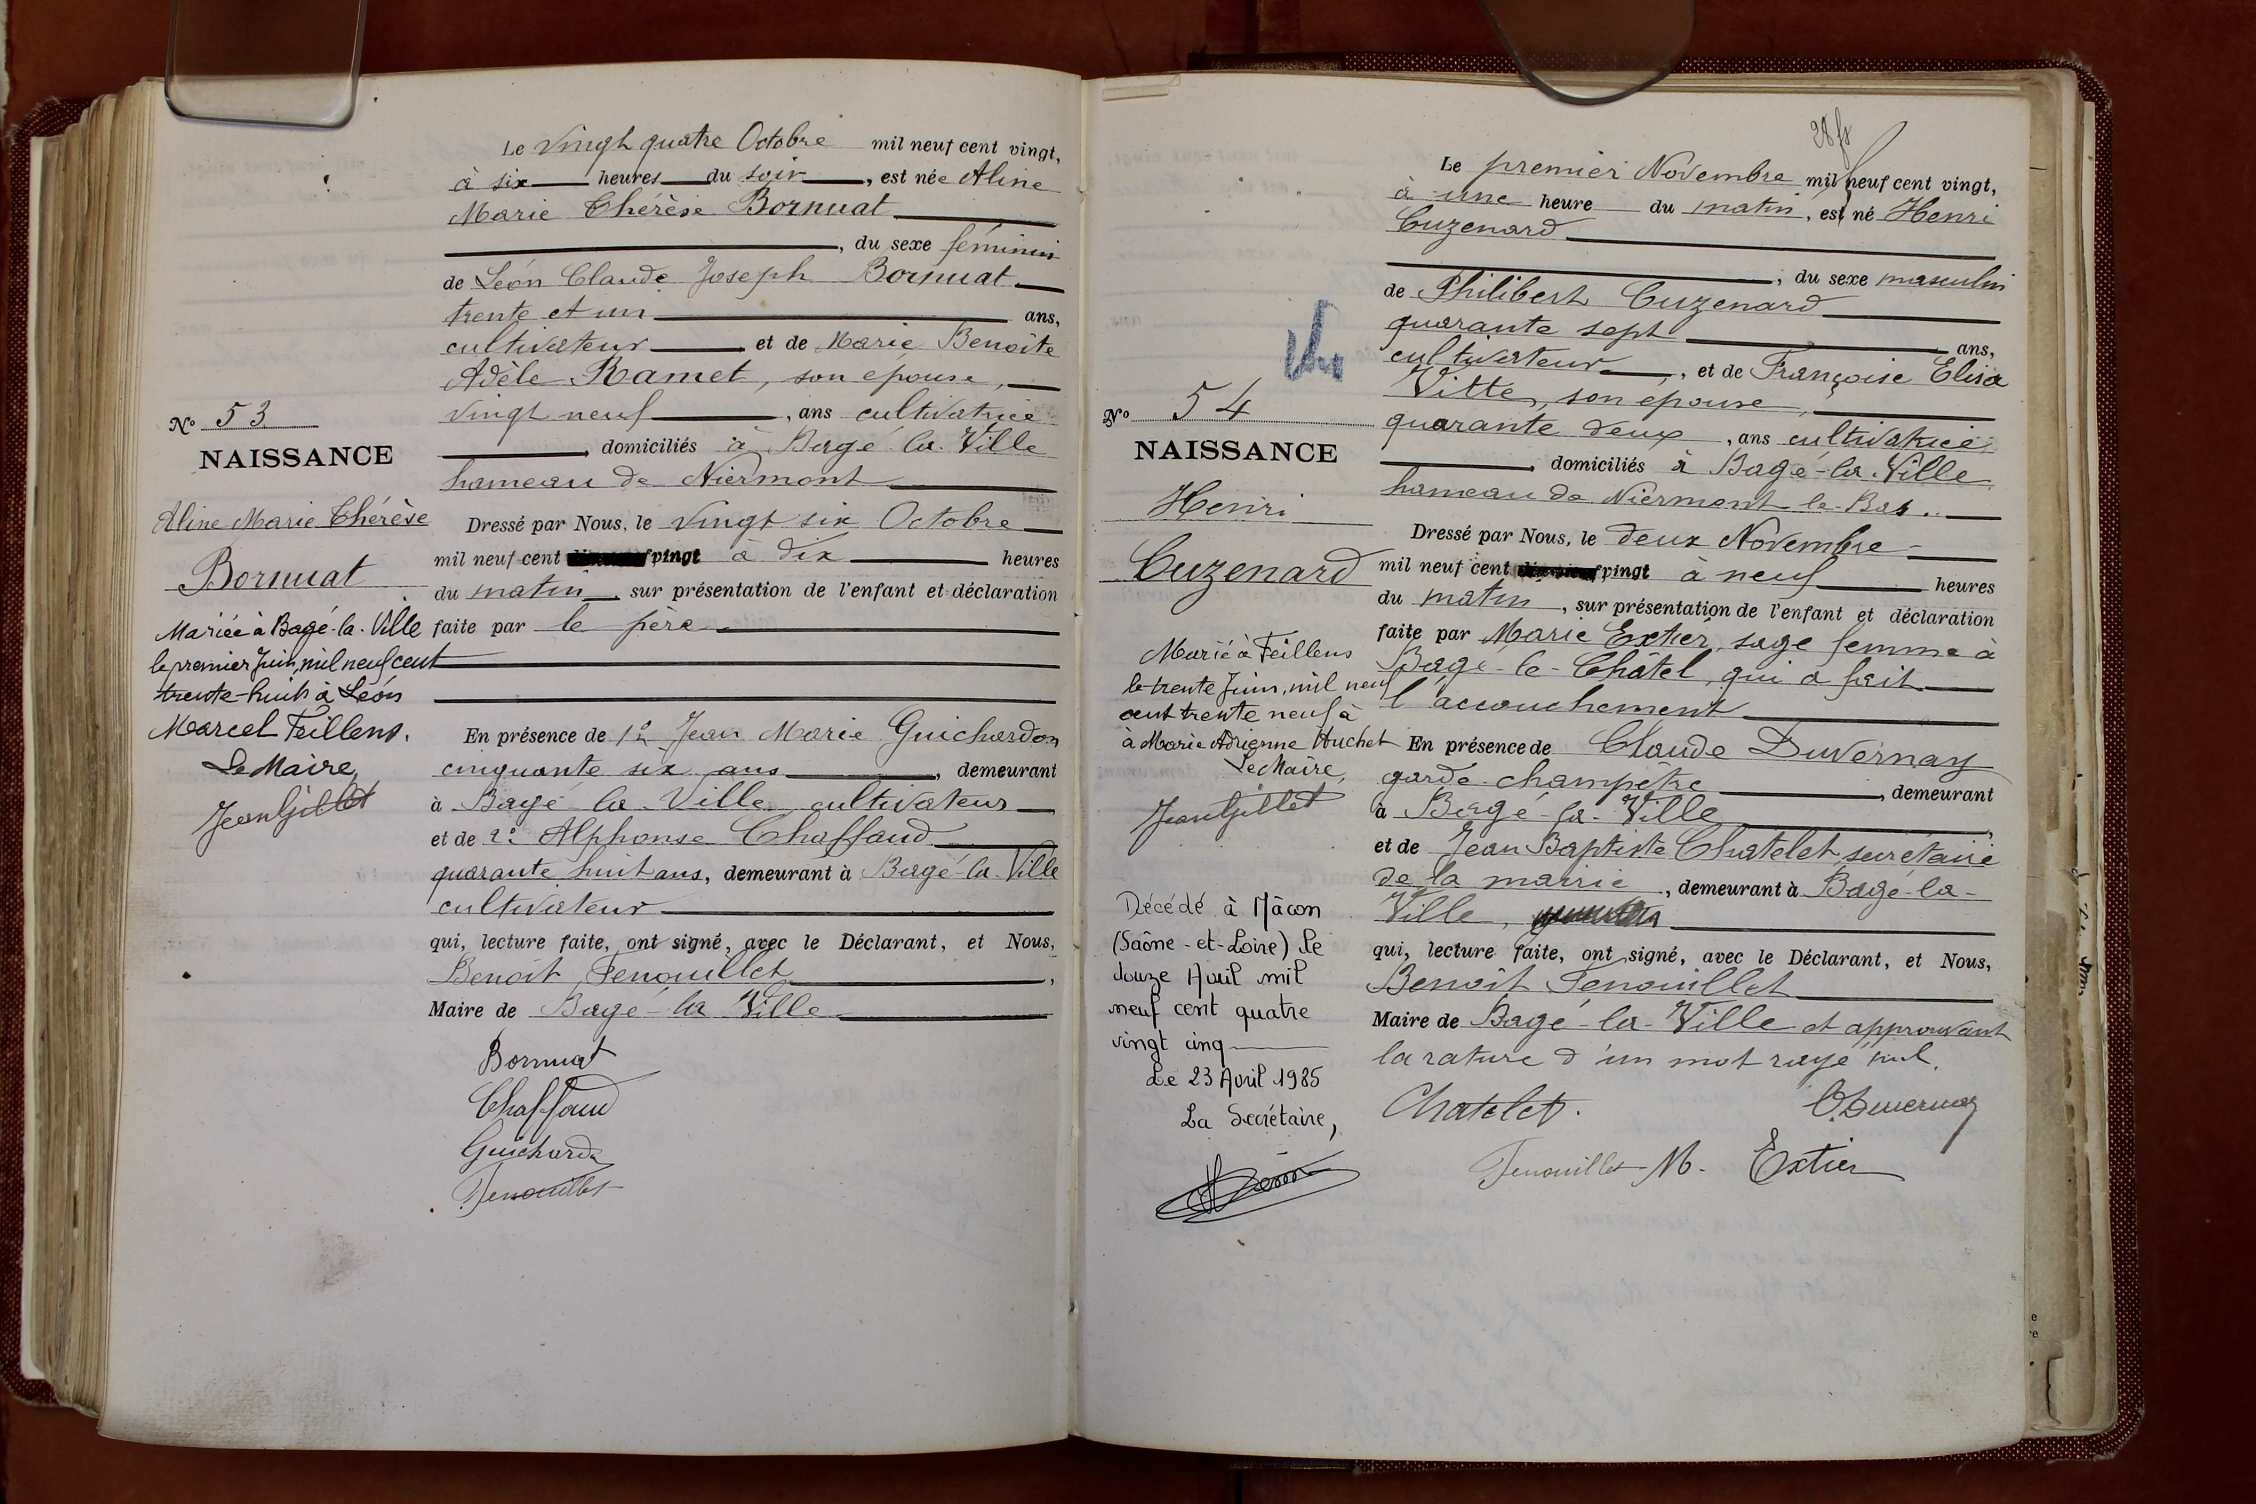 Le vingt quatre Octobre mil neuf cent vingt,
à six heures du soir, est née Aline
Marie Thérèse Bornuat
, du sexe féminin
de Léon Claude Joseph Bornuat
trente et un ans,
cultivateur et de Marie Benoîte
Adèle Ramet, son épouse,
vingt neuf, ans cultivatrice
, domiciliés à Bagé-la-Ville
hameau de Niermont
Dressé par Nous, le vingt six Octobre
mil neuf cent vingt à dix heures
du matin, sur présentation de l'enfant et déclaration
faite par le père
En présence de 1° Jean Marie Guichardon
cinquante six ans, demeurant
à Bagé-la-Ville cultivateur
et de 2° Alphonse Chaffaud
quarante huit ans, demeurant à Bagé-la-Ville
cultivateur
qui, lecture faite, ont signé, avec le Déclarant, et Nous,
Benoît Fenouillet,
Maire de Bagé-la-Ville
Bornuat
Chaffaud
Guichardon
Fenouillet
N° 53
NAISSANCE
Aline Marie Thérèse
Bornuat
Mariée à Bagé-la-Ville
le premier Juin, mil neuf cent
trente-huit à Léon
Marcel Feillens.
Le Maire,
Jean Gillet
28 fs
Le premier Novembre mil neuf cent vingt,
à une heure du matin, est né Henri
Cuzenard
, du sexe masculin
de Philibert Cuzenard
quarante sept ans,
cultivateur, et de Françoise Elisa
Vitte, son épouse,
quarante deux, ans cultivatrice
, domiciliés à Bagé-la-Ville
hameau de Niermont-le-Bas.
Dressé par Nous, le deux Novembre
mil neuf cent vingt à neuf heures
du matin, sur présentation de l'enfant et déclaration
faite par Marie Extier, sage femme à
Bagé-le-Châtel, qui a fait
l'accouchement
En présence de Claude Duvernay
garde-champêtre, demeurant
à Bagé-la-Ville,
et de Jean Baptiste Chatelet secrétaire
de la mairie, demeurant à Bagé-la-
Ville,
qui, lecture faite, ont signé, avec le Déclarant, et Nous,
Benoît Fenouillet
Maire de Bagé-la-Ville et approuvant
la rature d'un mot rayé nul.
Chatelet. C. Duvernay
Fenouillet M. Extier
Vu
N° 54
NAISSANCE
Henri
Cuzenard
Marié à Feillens
le trente Juin, mil neuf
cent trente neuf à
à Marie Adrienne Huchet
Le Maire,
Jean Gillet
Décédé à Mâcon
(Saône-et-Loire) le
douze Avril mil
neuf cent quatre
vingt cinq
Le 23 Avril 1985
La Secrétaire,